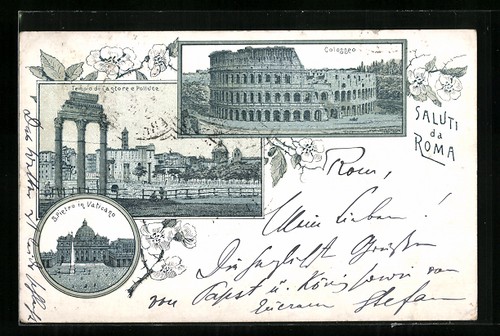 Colosseo
Tempio di Castore e Polluce
SALUTI
da
ROMA
S. Pietro in Vaticano
Rom,
Meine Lieben!
Die herzlichst Grüßen
von Papst u. König sowie von
Eurem Stefan